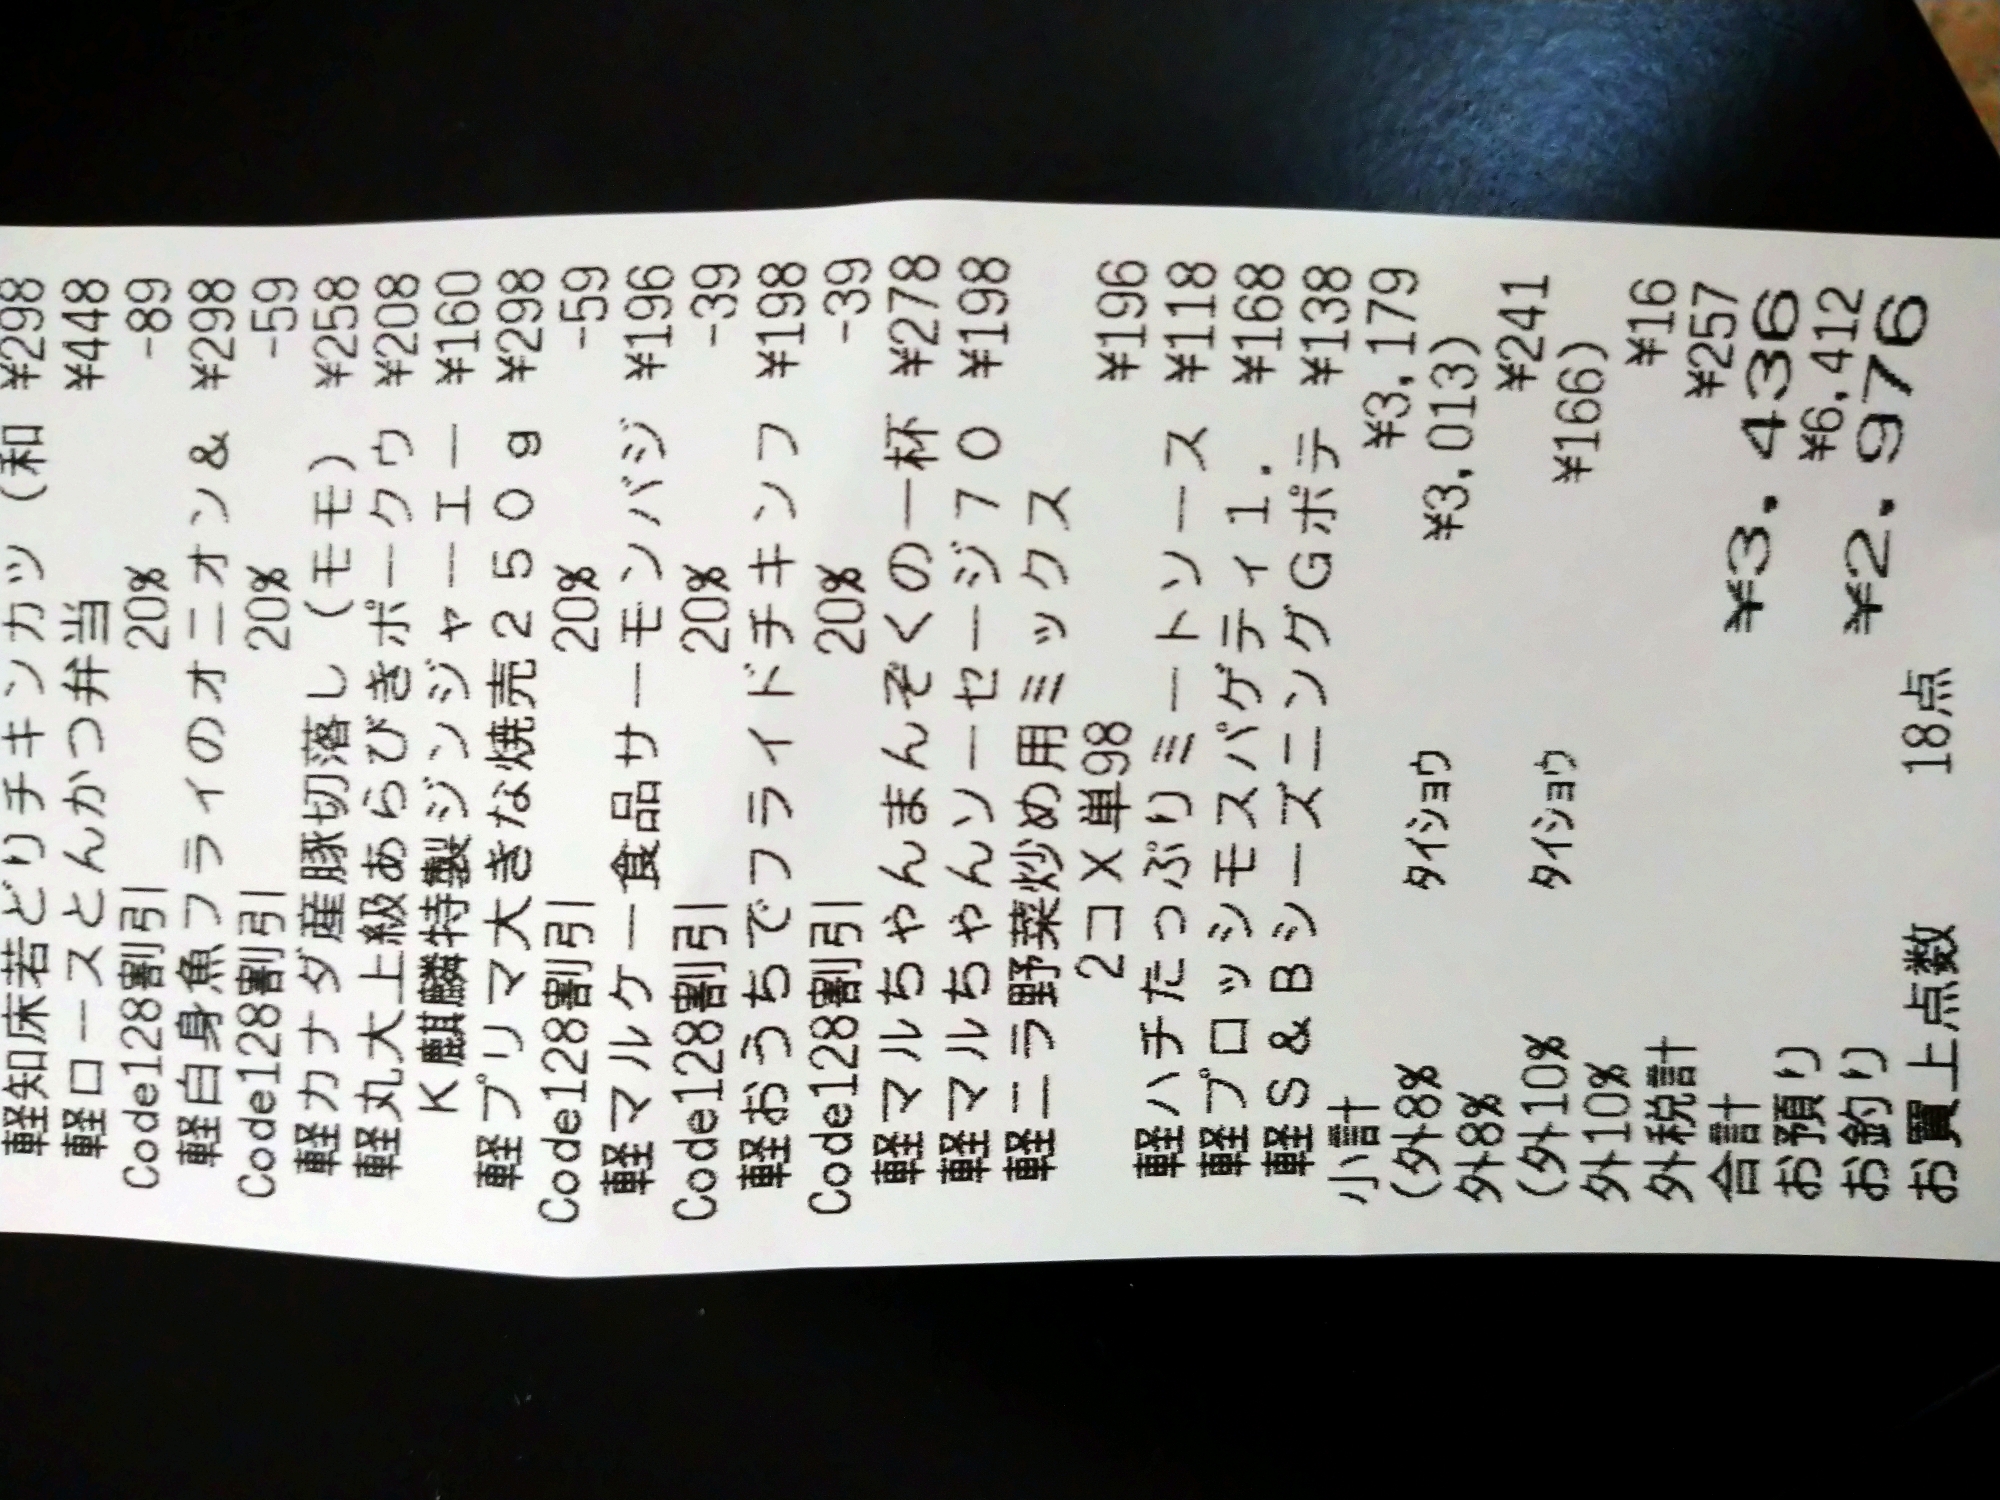 軽知床若どりチキンカツ（和 ¥298
軽ロースとんかつ弁当 ¥448
Code128割引 20% -89
軽白身魚フライのオニオン& ¥298
Code128割引 20% -59
軽カナダ産豚切落し（モモ） ¥258
軽丸大上級あらびきポークウ ¥208
K麒麟特製ジンジャーエー ¥160
軽プリマ大きな焼売250g ¥298
Code128割引 20% -59
軽マルケー食品サーモンバジ ¥196
Code128割引 20% -39
軽おうちでフライドチキンフ ¥198
Code128割引 20% -39
軽マルちゃんまんぞくの一杯 ¥278
軽マルちゃんソーセージ70 ¥198
軽ニラ野菜炒め用ミックス
2コX単98 ¥196
軽ハチたっぷりミートソース ¥118
軽プロッシモスパゲティ1. ¥168
軽S&BシーズニングGポテ ¥138
小計 ¥3,179
(外8% タイショウ ¥3,013)
外8% ¥241
(外10% タイショウ ¥166)
外10% ¥16
外税計 ¥257
合計 ¥3,436
お預り ¥6,412
お釣り ¥2,976
お買上点数 18点